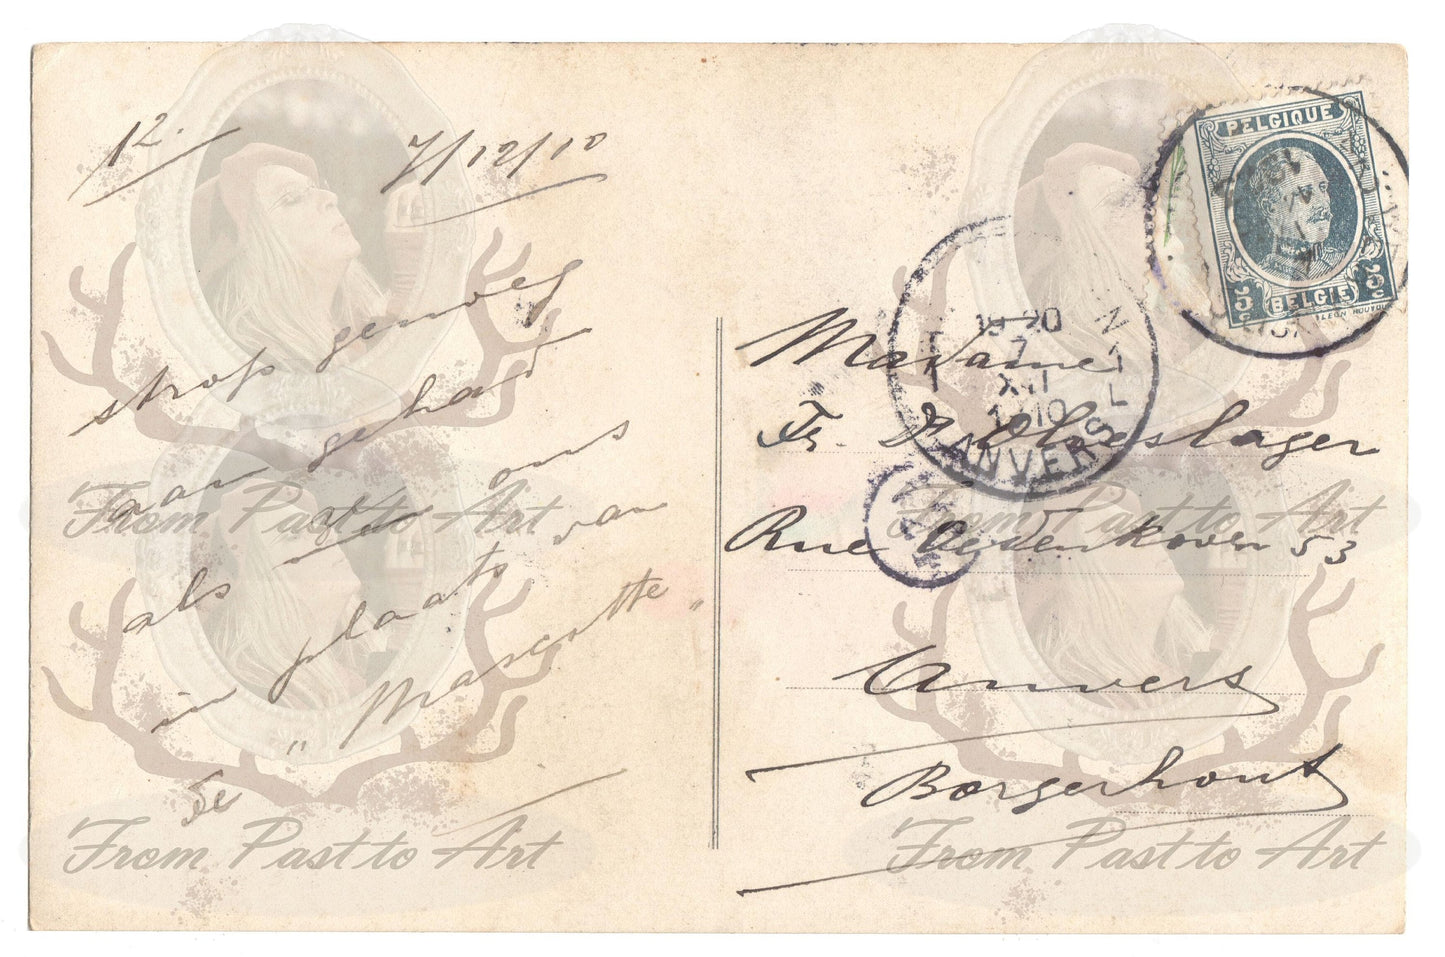 12.
7/12/10
strop genoeg
aan gehad
als ons
in plaats van
de „Mascotte"
BELGIQUE
5c BELGIE 5c
ANVERS
7
XII
1910
Madame
Fr. Olieslager
Rue 53
Anvers
Borgerhout
From Past to Art
From Past to Art
From Past to Art
From Past to Art